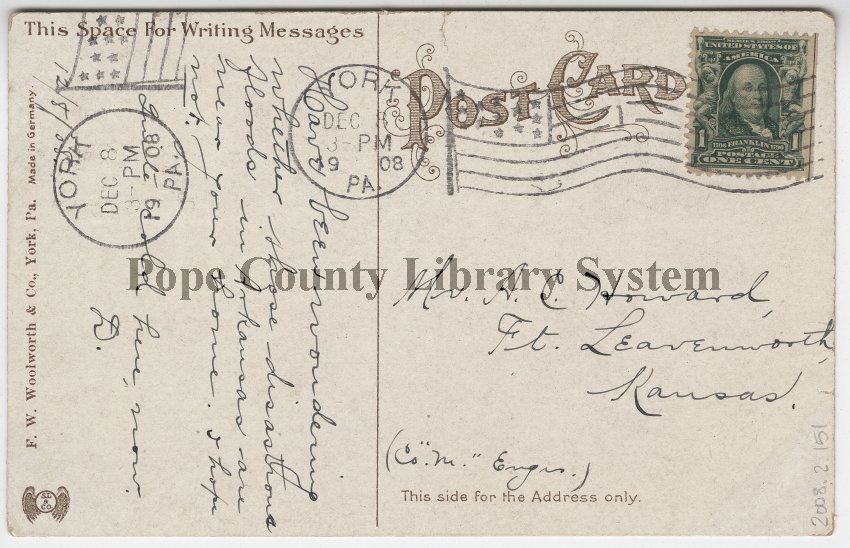 This Space For Writing Messages
12/8/08
Have been wondering
whether those disasthous
floods in Arkansas are
near your home. I hope
not.
Quite cold here, now.
D.
YORK
DEC 8
3-PM
1908
PA.
F. W. Woolworth & Co., York, Pa. Made in Germany.
S.L.
& CO.
POST CARD
YORK
DEC 8
3-PM
1908
PA.
SERIES 1902
UNITED STATES OF
AMERICA
1706 FRANKLIN 1790
POSTAGE
1 ONE CENT 1
Mr. H. C. Howard,
Ft. Leavenworth,
Kansas.
(Co. "M." Engrs.)
This side for the Address only.
2008.2.151
Pope County Library System